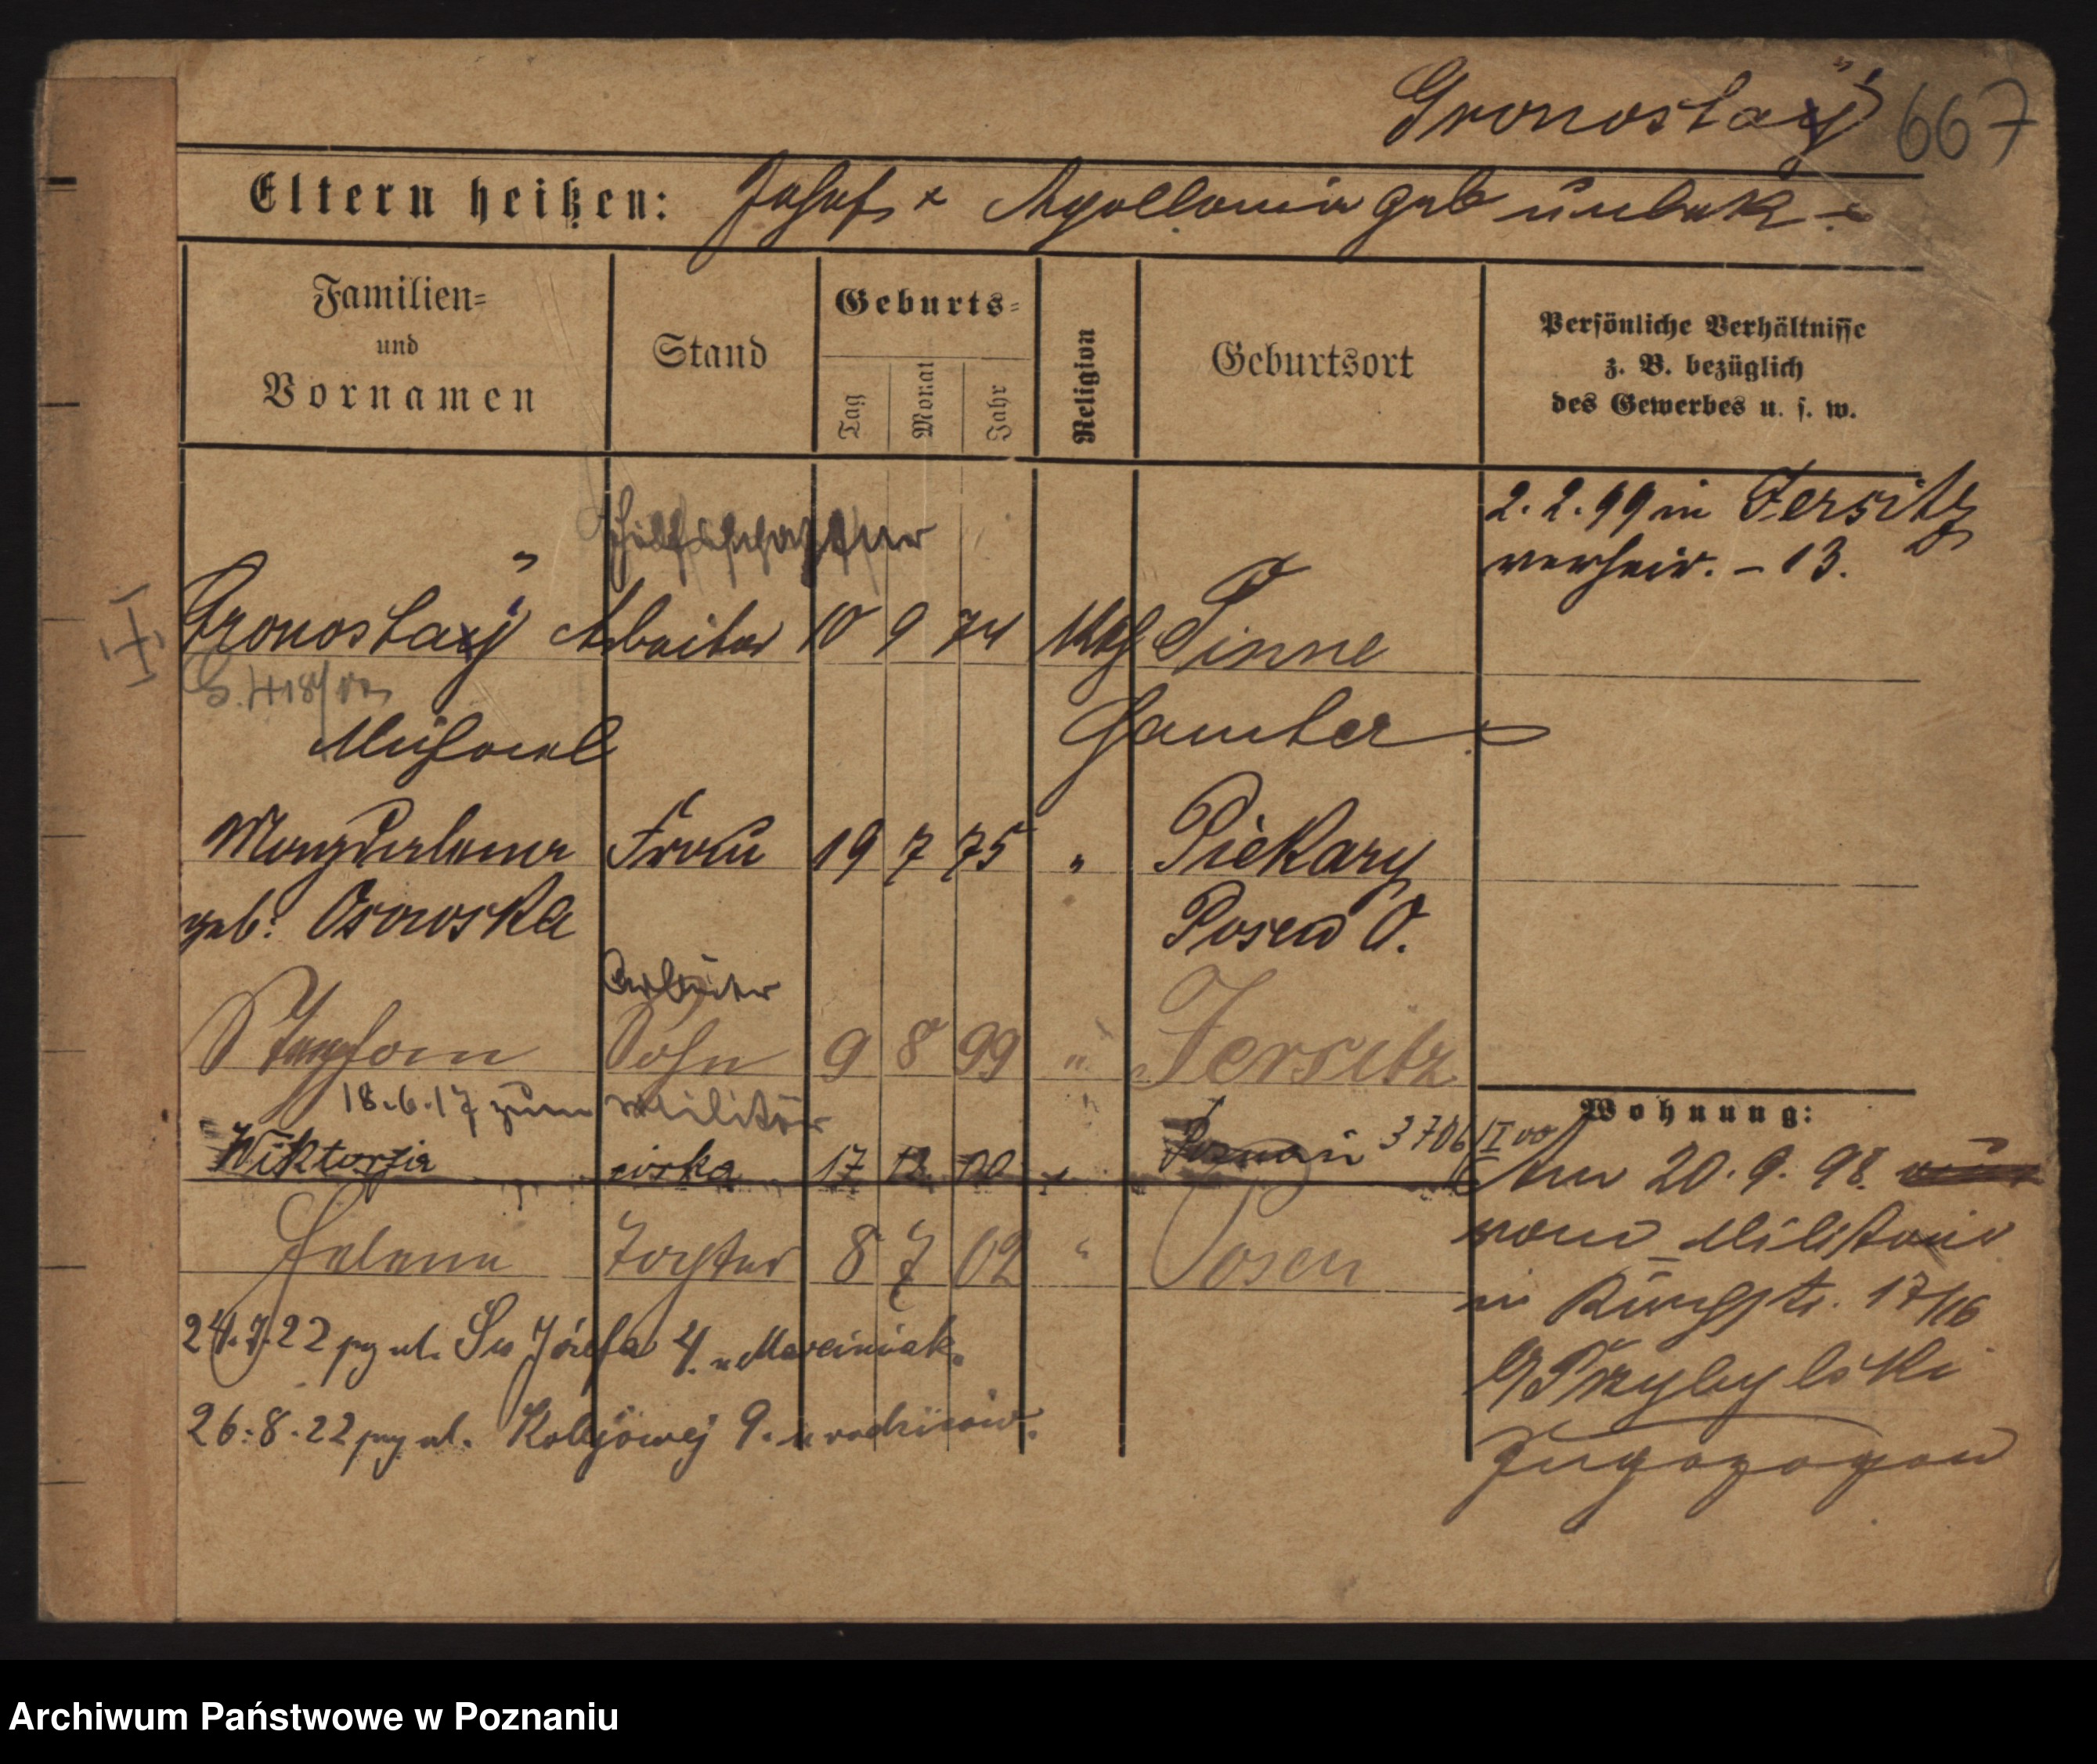 Gronostaÿ 667
Eltern heißen: Josef & Apollonia geb unbek.
Familien=
und
Vornamen
Stand
Geburts=
Tag
Monat
Jahr
Religion
Geburtsort
Persönliche Verhältnisse
z. B. bezüglich
des Gewerbes u. s. w.
2.2.99 in Jersitz
verheir. – 13.
Hilfsschaffner
Gronostaÿ Arbeiter 10 9 74 Kth Pinne
Michael Samter
Magdalena Frau 19 7 75 " Piekary
geb. Osowska Posen O.
Arbeiter
Stephan Sohn 9 8 99 " Jersitz
18.6.17 zum Militär
Wohnung:
Wiktorja córka 17 12 00 " Poznań 3706/I 00
An 20.9.98.
vom Militair
Helena Tochter 8 7 02 " Posen
in Ringstr. 17/16
24.7.22 pzy ul. Św Józefa 4. u Marciniak.
b/Przybylski
26.8.22 pzy ul. Kolejowej 9. u rodziców.
Zugezogen
Archiwum Państwowe w Poznaniu